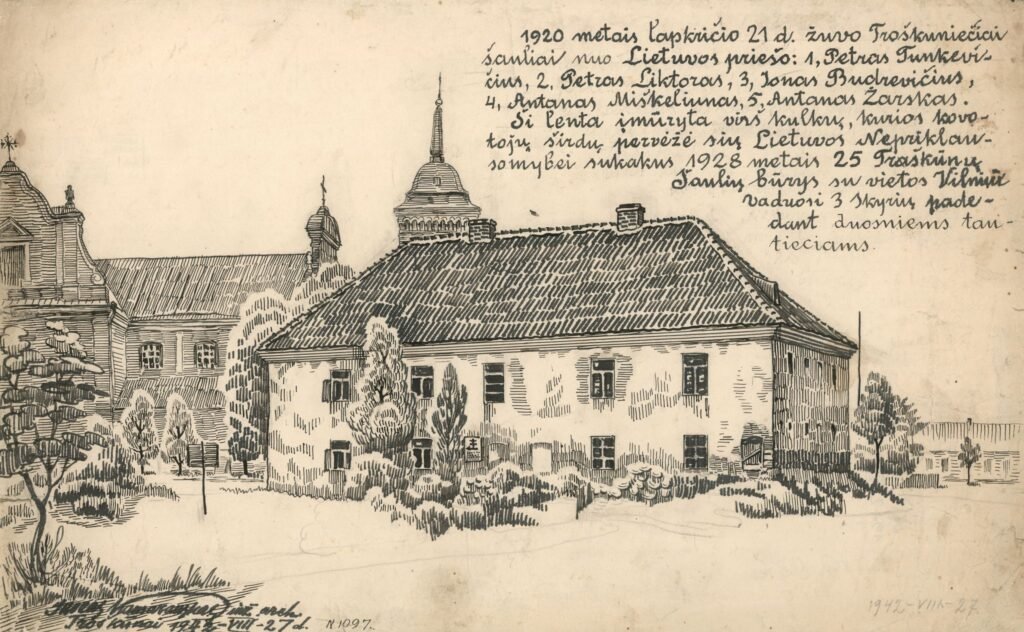 1920 metais lapkričio 21 d. žuvo Troškuniečiai
šauliai nuo Lietuvos priešo: 1, Petras Tunkevi-
čius, 2, Petras Liktoras, 3, Jonas Budrevičius,
4, Antanas Miškeliunas, 5, Antanas Žarskas.
Ši lenta įmūryta virš kulkų, kurios kovo-
tojų širdų pervėžė sių Lietuvos Nepriklau-
somybei sukakus 1928 metais 25 Traškūnų
Šaulių būrys su vietos Vilniui
vaduosi 3 skyrių pade-
dant duosniems tau-
tieciams.
inž. arch.
Troškunai 1942-VIII-27 d. N 1097.
1942-VIII-27.